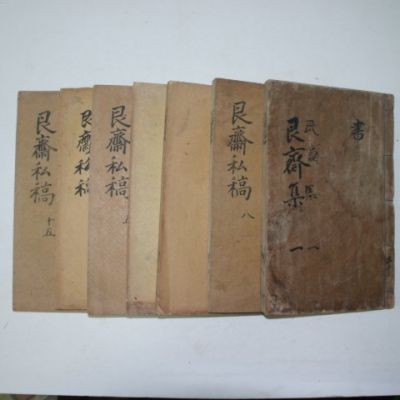 書
艮齋集 一
艮齋私稿 八
艮齋私稿
艮齋私稿
艮齋私稿 十五